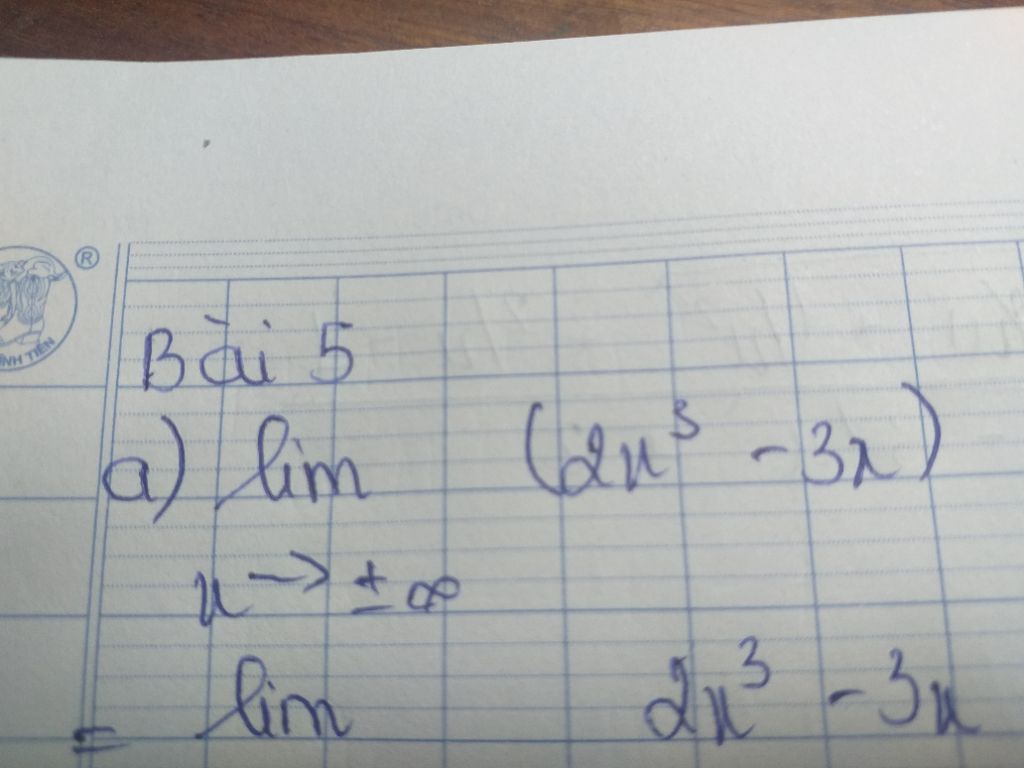 ®
Bài 5
a) lim (2x³ - 3x)
x → ± ∞
= lim 2x³ - 3x